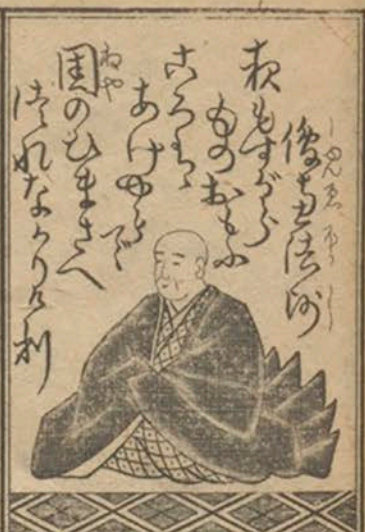 俊恵法師
夜もすがら
ものおもふ
ころは
あけやらで
閨のひまさへ
つれなかりけり
ねや